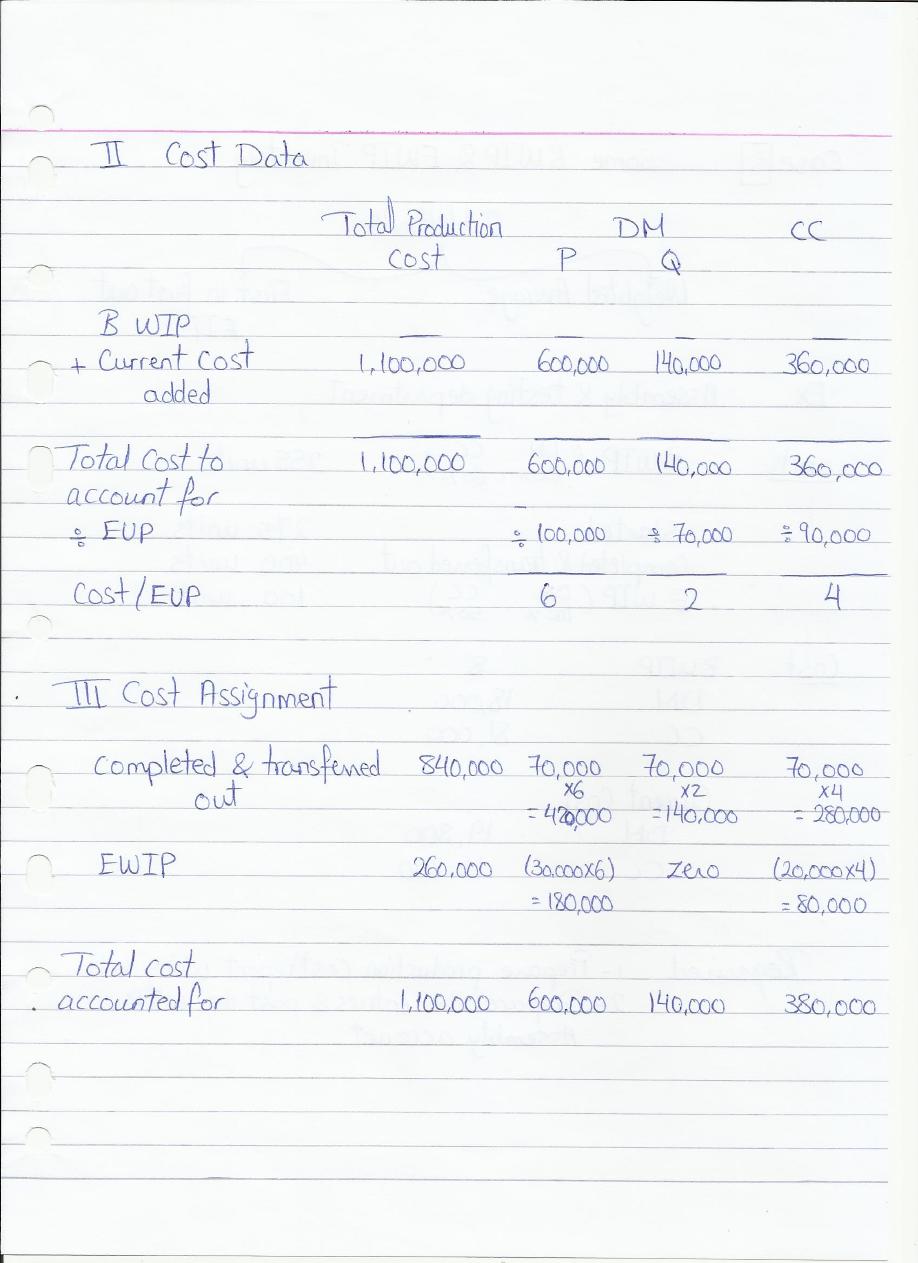 II Cost Data
Total Production DM CC
cost P Q
B WIP — — — —
+ Current Cost 1,100,000 600,000 140,000 360,000
added
Total Cost to 1,100,000 600,000 140,000 360,000
account for
÷ EUP ÷ 100,000 ÷ 70,000 ÷ 90,000
Cost/EUP 6 2 4
III Cost Assignment
Completed & transferred 840,000 70,000 70,000 70,000
out x6 x2 x4
= 420,000 = 140,000 = 280,000
EWIP 260,000 (30,000x6) Zero (20,000x4)
= 180,000 = 80,000
Total cost
accounted for 1,100,000 600,000 140,000 380,000